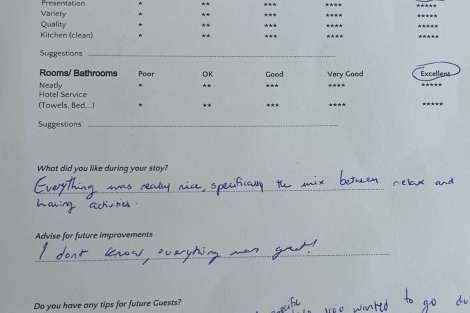 Presentation * ** *** ****
Variety * ** *** **** *****
Quality * ** *** **** *****
Kitchen (clean) * ** *** **** *****
Suggestions
Rooms/ Bathrooms Poor OK Good Very Good Excellent
Neatly * ** *** **** *****
Hotel Service
(Towels, Bed,..) * ** *** **** *****
Suggestions
What did you like during your stay?
Everything was really nice, specifically the mix between relax and
having activities.
Advise for future improvements
I dont know, everything was great!
Do you have any tips for future Guests?
specific
you wanted to go